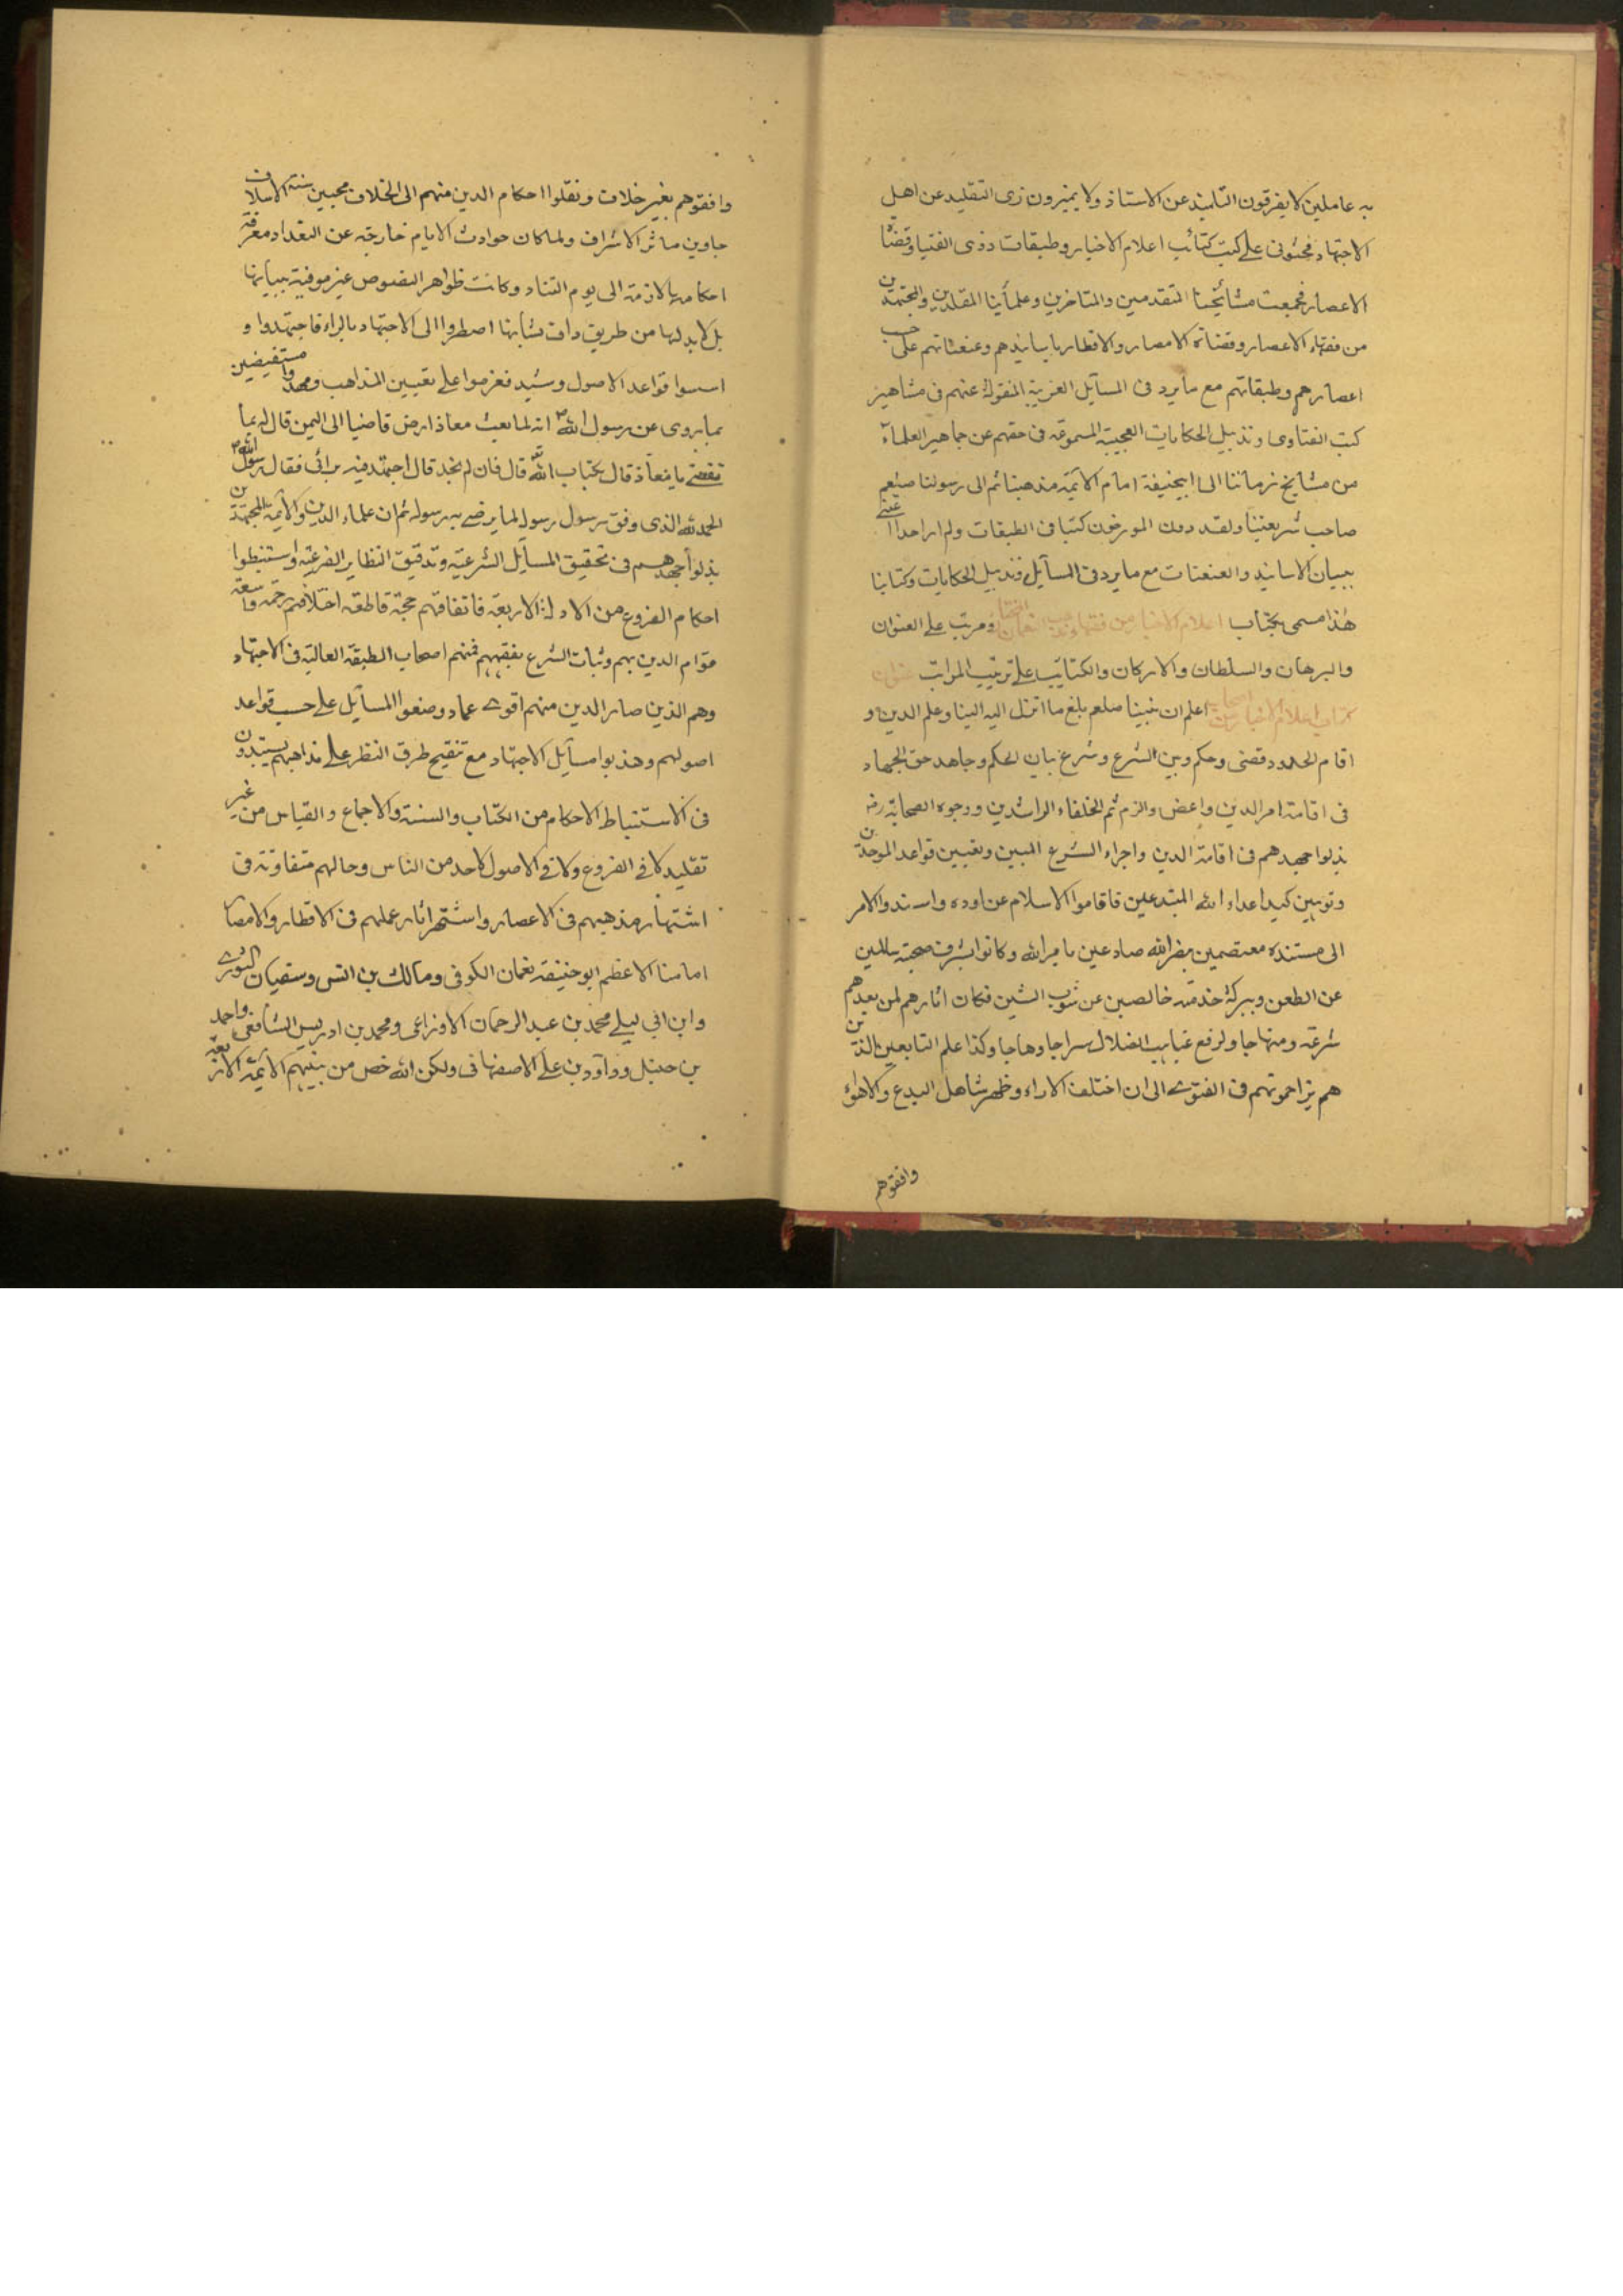 به عاملين لا يفرقون التلميذ عن الاستاذ ولا يميزون زى التقليد عن اهل
الاجتهاد فحثونى على كتب كتائب اعلام الاخيار وطبقات ذوى الفتيا وقضاة
الاعصار فجمعت مشائخنا المتقدمين والمتاخرين وعلمائنا المقلدين والمجتهدين
من فقهاء الاعصار وقضاة الامصار والاقطار باسانيدهم وعنعناتهم على حسب
اعصارهم وطبقاتهم مع ما يرد فى المسآيل الغريبة المنقولة عنهم فى مشاهير
كتب الفتاوى وتذييل الحكايات العجيبة المسموعة فى حقهم عن جماهير العلمآء
من مشايخ زماننا الى ابيحنيفة امام الائمة مذهبنا ثم الى رسولنا صلعم
صاحب شريعتنا ولقد دون المورخون كتبا فى الطبقات ولم ار احدا اعتنى
ببيان الاسانيد والعنعنات مع ما يرد فى المسآيل وتذييل الحكايات وكتابنا
هذا مسمى بكتاب اعلام الاخيار من فقهاء مذهب النعمان المختار ومرتب على العنوان
والبرهان والسلطان والاركان والكتايب على ترتيب المراتب عنوان
كتاب اعلام الاخيار اعلم ان نبينا صلعم بلغ ما انزل اليه الينا وعلم الدين و
اقام الحدود وقضى وحكم وبين الشرع وشرع بيان الحكم وجاهد حق الجهاد
فى اقامة امر الدين واعض والزم ثم الخلفاء الراشدين ووجوه الصحابة رضـ
بذلوا جهدهم فى اقامة الدين واجراء الشرع المبين وتعيين قواعد الموحدين
وتوهين كيد اعداء الله المبتدعين فاقاموا الاسلام عن اوده واسندوا الامر
الى مستنده معتصمين بنصر الله صادعين بامر الله وكانوا بشرف صحبته سالمين
عن الطعن وببركة خدمته خالصين عن شوب الشين فكان اثارهم لمن بعدهم
شرعة ومنهاجا ولرفع غياهب الضلال سراجا وهاجا وكذا علم التابعين الذين
هم يزاحمونهم فى الفتوى الى ان اختلف الاراء وظهر شاهل البدع والاهواء
وافقوهم
وافقوهم بغير خلاف ونقلوا احكام الدين منهم الى الخلاف محبين سنة الاسلاف
حاوين مآثر الاشراف ولما كان حوادث الايام خارجة عن التعداد معرفة
احكامها لازمة الى يوم التناد وكانت ظواهر النصوص غير موفية ببيانها
بل لا بد لها من طريق واف بشأنها اضطروا الى الاجتهاد بالراء فاجتهدوا و
اسسوا قواعد الاصول وشيد فعزموا على تعيين المذاهب ومهدوا مستفيضين
بما يروى عن رسول الله انه لما بعث معاذا رض قاضيا الى اليمن قال له بما
تقضى يا معاذ قال بكتاب الله قال فان لم تجد قال اجتهد فيه برائى فقال رسول الله
الحمد لله الذى وفق رسول رسوله لما يرضى به رسوله ثم ان علماء الدين والائمة المجتهدين
بذلوا جهدهم فى تحقيق المسآيل الشرعية وتدقيق النظاير الفرعية واستنبطوا
احكام الفروع من الادلة الاربعة فاتفاقهم حجة قاطعة اختلافهم رحمة واسعة
قوام الدين بهم وثبات الشرع بفقههم فمنهم اصحاب الطبقة العالية فى الاجتهاد
وهم الذين صار الدين منهم اقوى عماد وضعوا المسآيل على حسب قواعد
اصولهم وهذبوا مسآيل الاجتهاد مع تنقيح طرق النظر على مذاهبهم يستبدون
فى الاستنباط الاحكام من الكتاب والسنة والاجماع والقياس من غير
تقليد لا فى الفروع ولا فى الاصول لاحد من الناس وحالهم متفاوتة فى
اشتهار مذهبهم فى الاعصار واشتهر اثار عملهم فى الاقطار والامصار
امامنا الاعظم ابو حنيفة نعمان الكوفى ومالك بن انس وسفيان الثورى
وابن ابى ليلى محمد بن عبد الرحمان الاوزاعى ومحمد بن ادريس الشافعى واحمد
بن حنبل وداود بن على الاصفهانى ولكن الله خص من بينهم الائمة الاربعة